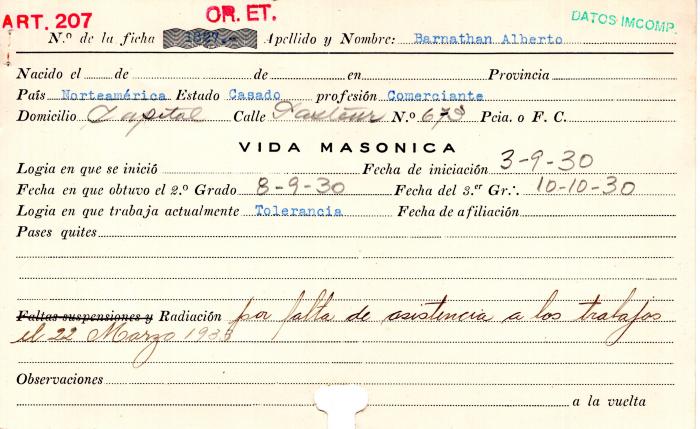 ART. 207
OR. ET.
DATOS IMCOMP.
N.º de la ficha Apellido y Nombre: Barnathan Alberto
Nacido el de de en Provincia
País Norteamérica Estado Casado profesión Comerciante
Domicilio Capital Calle Pasteur N.º 673 Pcia. o F. C.
VIDA MASONICA
Logia en que se inició Fecha de iniciación 3-9-30
Fecha en que obtuvo el 2.º Grado 8-9-30 Fecha del 3.er Gr∴ 10-10-30
Logia en que trabaja actualmente Tolerancia Fecha de afiliación
Pases quites
Faltas suspensiones y Radiación por falta de asistencia a los trabajos
el 22 Marzo
Observaciones
a la vuelta